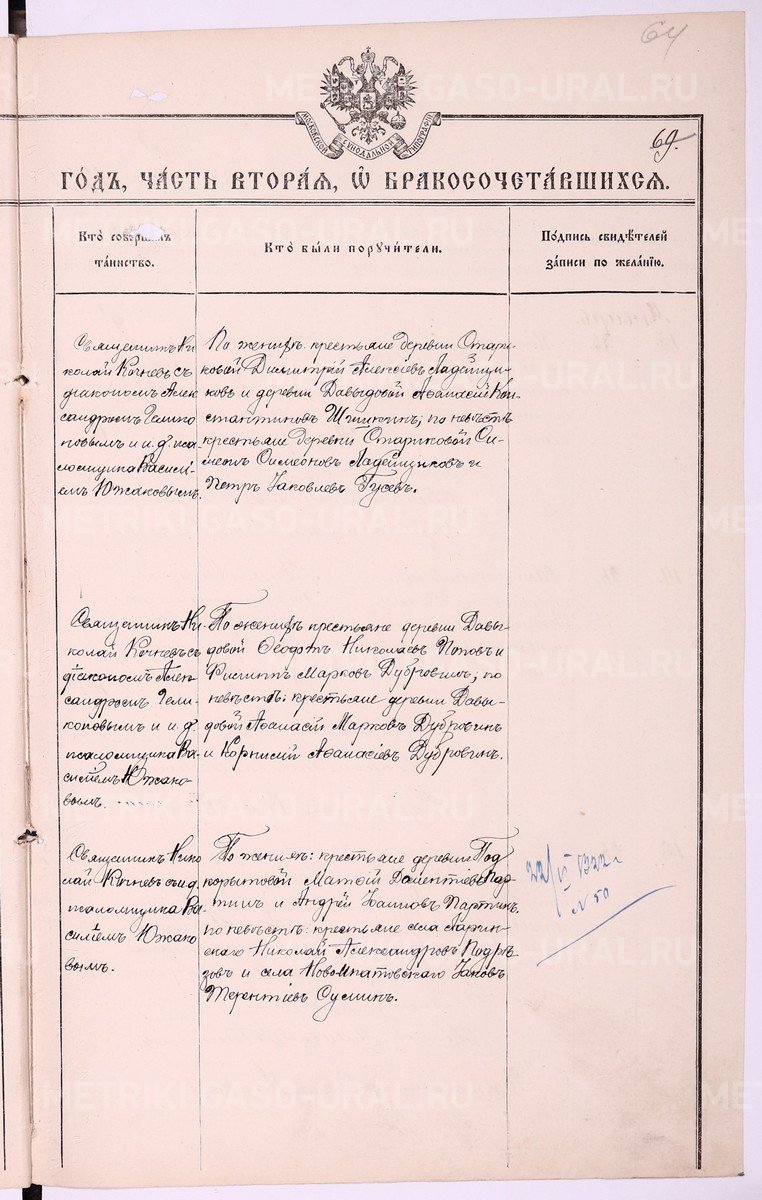 64
69.
МОСКОВСКОЙ СѴНОДАЛЬНОЙ ТИПОГРАФІИ
ГО́ДЪ, ЧА́СТЬ ВТОРА́Я, Ѡ҆ БРАКОСОЧЕТА́ВШИХСЯ.
Кто̀ соверша́лъ
та́инство.
Кто̀ бы́ли поручи́тели.
По́дпись свидѣ́телей
за́писи по жела́нію.
Священникъ Ни-
колай Кочневъ съ
діакономъ Алек-
сандромъ Гелико-
новымъ и и. д. пса-
ломщика Василі-
емъ Южаковымъ.
По женихѣ: крестьяне деревни Стари-
ковой Димитрій Алексѣевъ Ладейщи-
ковъ и деревни Давыдовой Аѳанасій Кон-
стантиновъ; по невѣстѣ
крестьяне деревни Стариковой Си-
меонъ Симеоновъ Ладейщиковъ и
Петръ Іаковлевъ Гусевъ.
Священникъ Ни-
колай Кочневъ съ
діакономъ Алек-
сандромъ Гели-
коновымъ и и. д.
псаломщика Ва-
силіемъ Южако-
вымъ.
По женихѣ крестьяне деревни Давы-
довой Ѳеодотъ Николаевъ Поповъ и
Филиппъ Марковъ Дубровинъ; по
невѣстѣ: крестьяне деревни Давы-
довой Аѳанасій Марковъ Дубровинъ
и Корнилій Аѳанасіевъ Дубровинъ.
Священникъ Нико
лай Кочневъ съ и. д.
псаломщика Ва-
силіемъ Южако
вымъ.
По женихѣ: крестьяне деревни Под
корытовой Матѳій Дометіевъ Пар-
тинъ и Андрей Іоанновъ Партинъ,
по невѣстѣ: крестьяне села Ларин-
скаго Николай Александровъ Подрѣ-
зовъ и села Новоипатовскаго Іаковъ
Терентіевъ Суслинъ.
22/VI 1922 г.
№ 50
METRIKI.GASO-URAL.RU